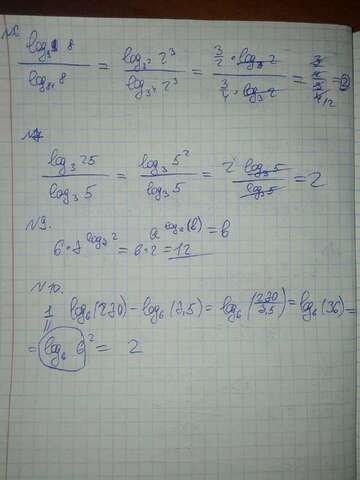 log₉ 8 / log₈₁ 8 = log₃² 2³ / log₃⁴ 2³ = (3/2 · log₃ 2) / (3/4 · log₃ 2) = 2
log₃ 25 / log₃ 5 = log₃ 5² / log₃ 5 = 2 log₃ 5 / log₃ 5 = 2
N9.
6 · 7^(log₇ 2) = 6 · 2 = 12
N10.
log₆(270) − log₆(7,5) = log₆(270/7,5) = log₆(36) =
= log₆ 6² = 2